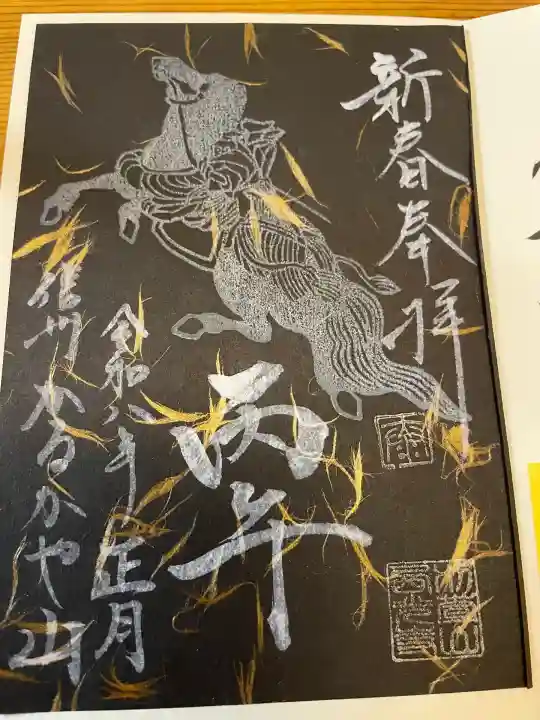 新春奉拝
丙午
令和八年正月
信州かるかや山